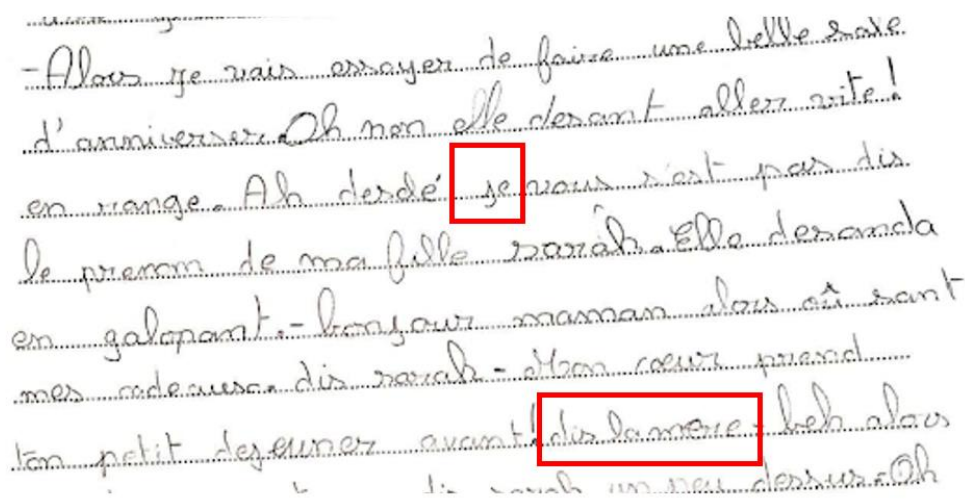 -Alors je vais essayer de faire une belle sale
d'anniverser. Oh non elle desant aller vite!
en range. Ah desdé je vous s'est pas dis
le prenom de ma fille sarah. Elle desanda
en galopant.-bonjour maman alors où sont
mes cadeauses. dis sarah - Mon cœur prend
ton petit dejeuner avant! dis la mère - beh alors
dis sarah un peu dessus. Oh